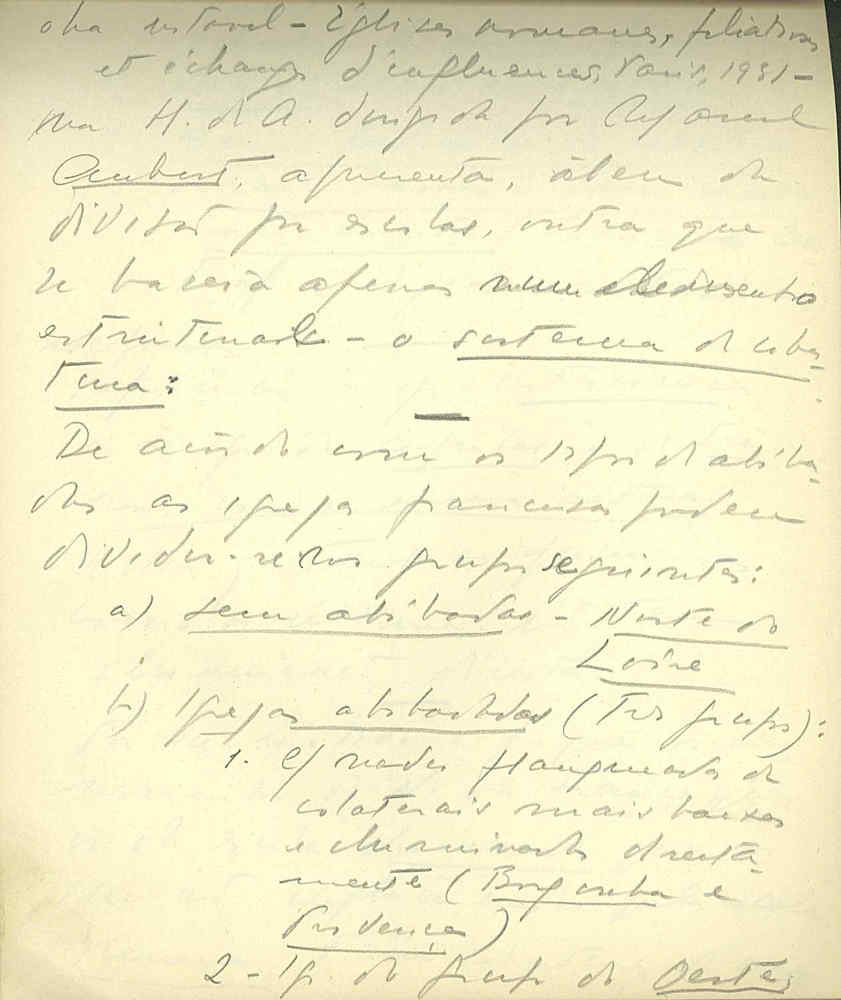 obra notavel - Églises romanes, filiations
et échanges d'influences, Paris, 1931 -
na H. d A. dirigida por
Aubert, apresenta, além da
divisão por escolas, outra que
se baseia apenas num elemento
estrutural - o sistema de cober-
tura:
De acôrdo com os tipos de abóba-
das as igrejas francesas podem
dividir-se nos grupos seguintes:
a) sem abóbadas - Norte do
Loire
b) Igrejas abobadadas (Três grupos):
1. c/ nades flanqueadas de
colaterais mais baixos
e iluminada directa-
mente (Borgonha e
Provença)
2 - Ig. do grupo do Oeste,